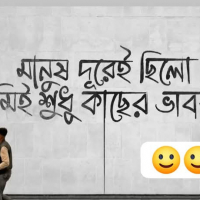 মানুষ দূরেই ছিলো
মিই শুধু কাছের ভাব